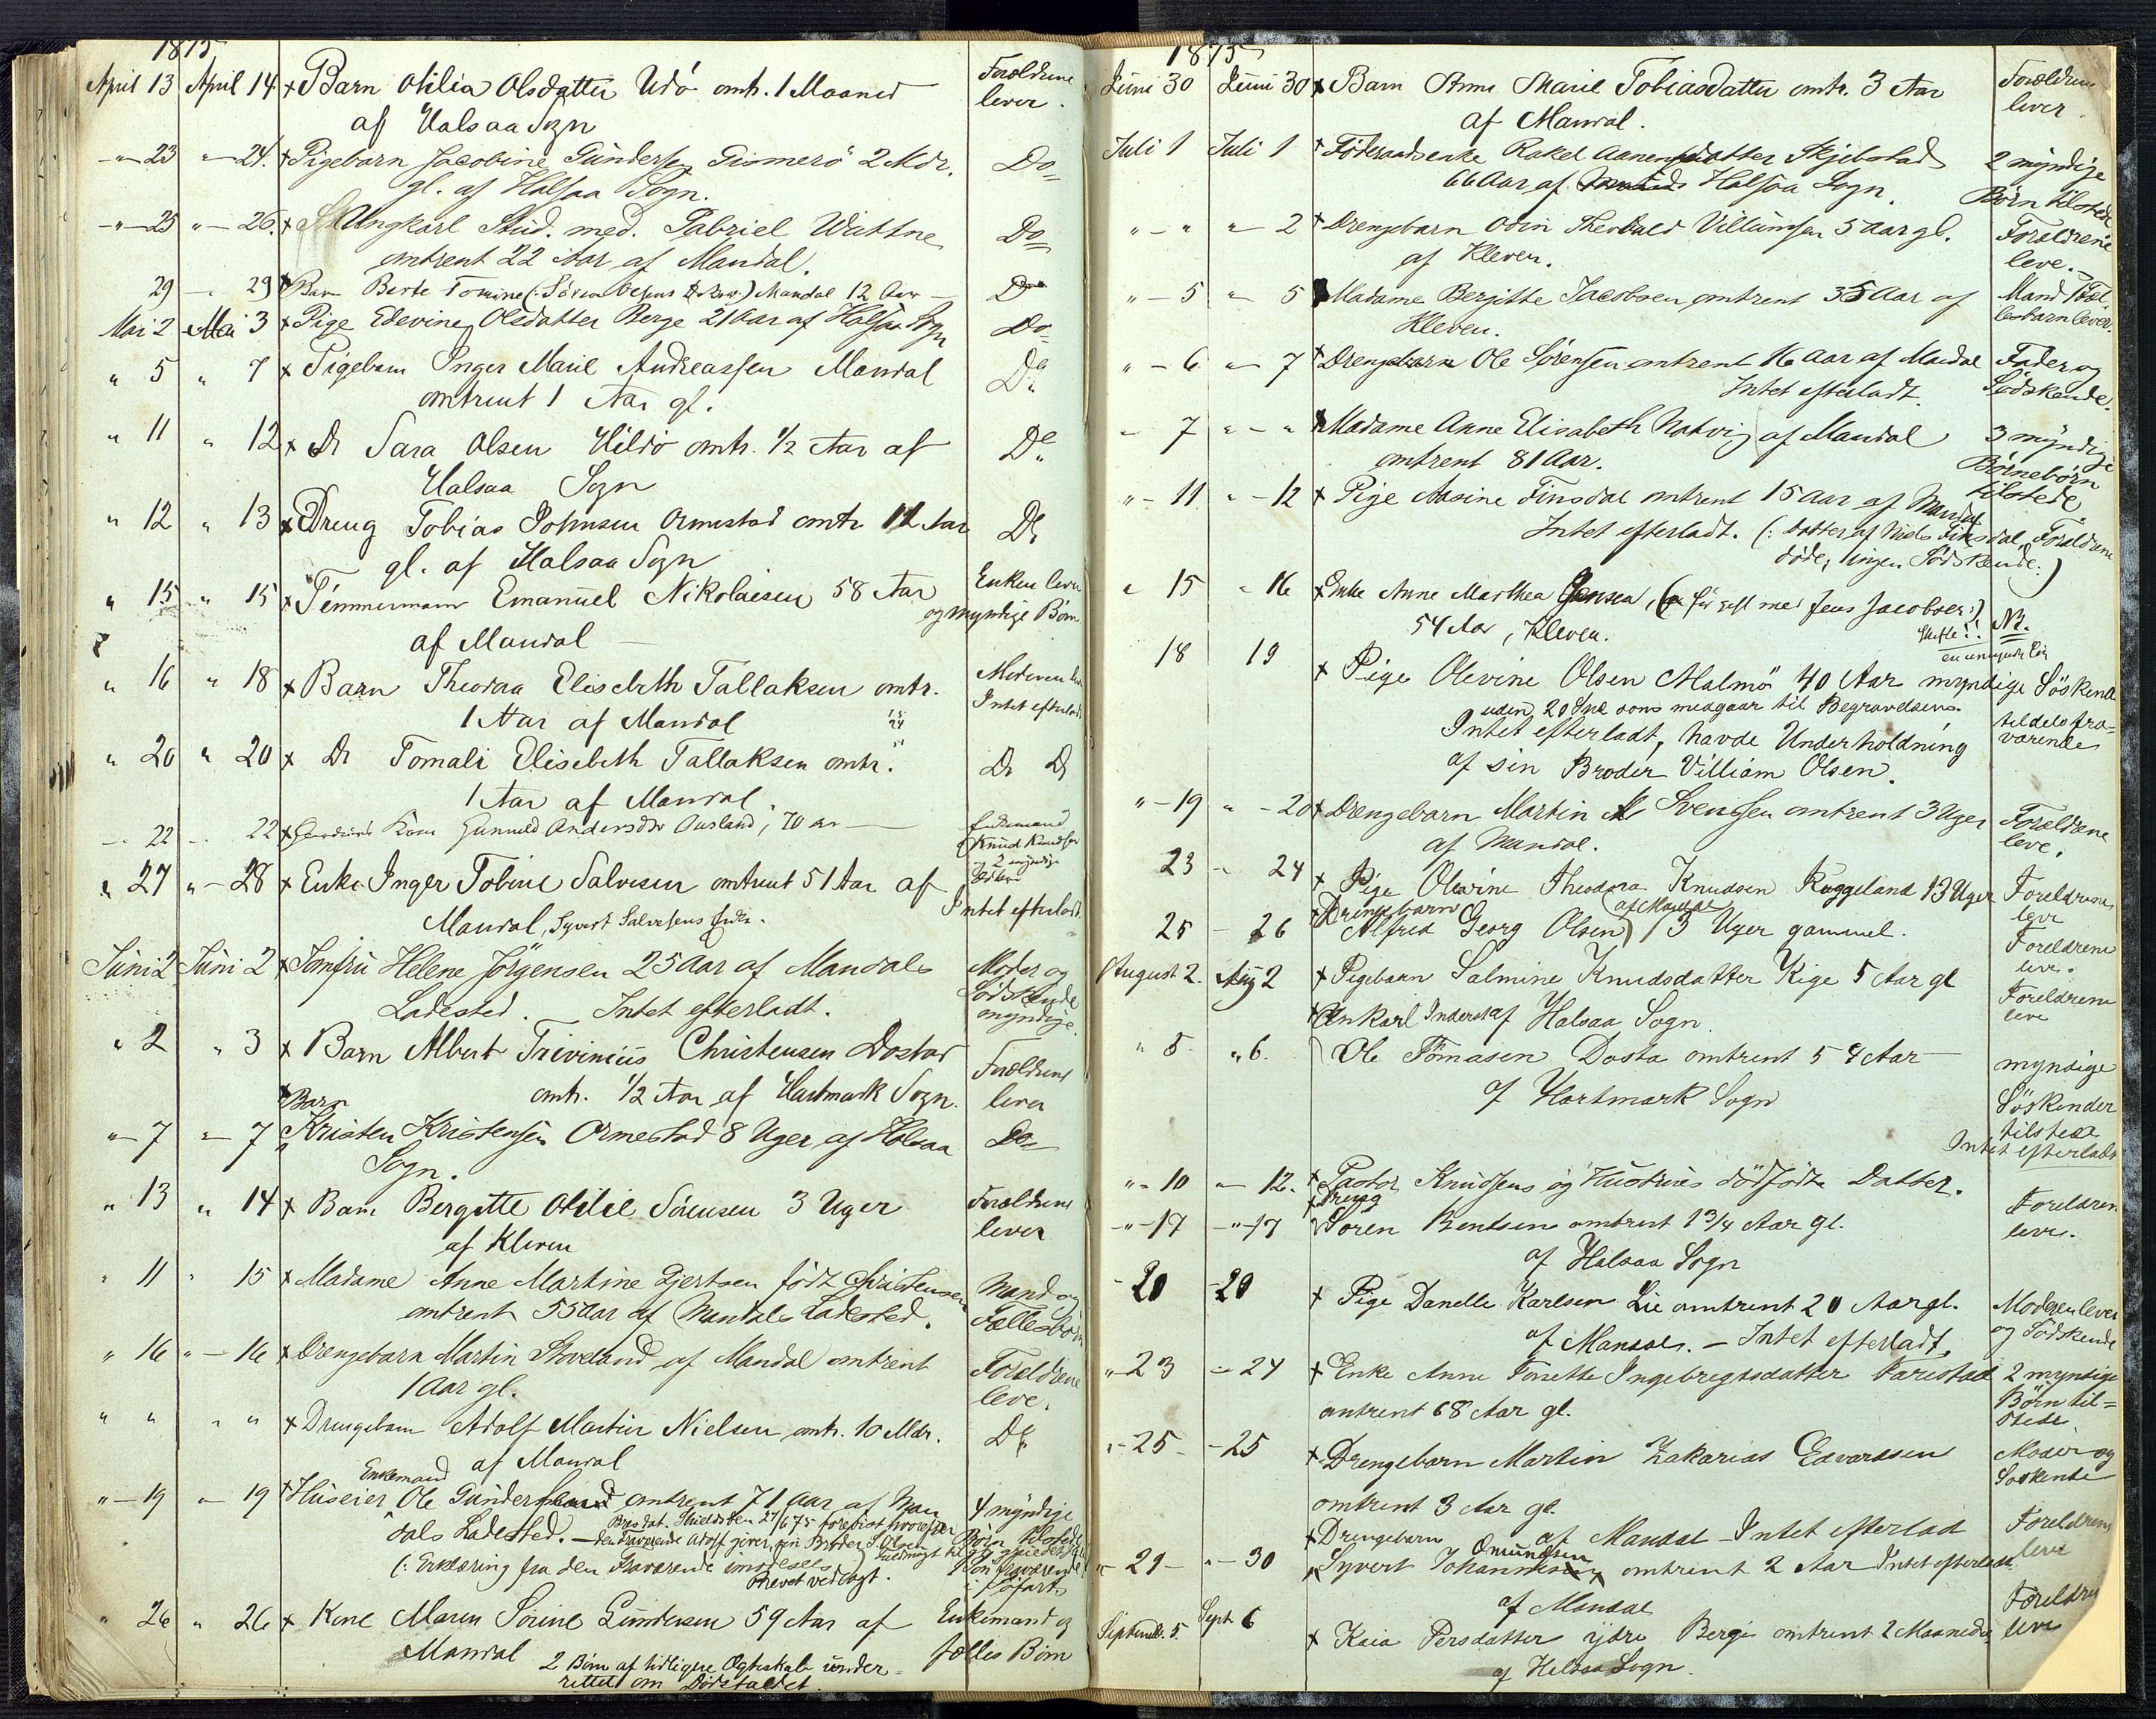 1875
April 13 April 14 + Barn Otilia Olsdatter Udö omtr. 1 Maaned Forældrene
af Halsaa Sogn lever.
-"- 23 "- 24. + Pigebarn Jacobine Gundersen Gismerö 2 Mdr. Do
gl. af Halsaa Sogn.
-"- 25 "- 26. + Ungkarl Stud. med. Gabriel Wattne Do
omtrent 22 Aar af Mandal.
29 - 29 Barn Berte Tomine Mandal 12 Aar
Mai 2 Mai 3 + Pige Edevine Olsdatter Berge 21 Aar af Halsaa Sogn Do
" 5 " 7 + Pigebarn Inger Marie Andreassen Mandal Do
omtrent 1 Aar gl.
" 11 " 12 + Do Sara Olsen Hildö omtr. 1/2 Aar af Do
Halsaa Sogn
" 12 " 13 + Dreng Tobias Johnsen Ormestad omtr 12 Aar Do
gl. af Halsaa Sogn
" 15 " 15 + Temmermann Emanuel Nikolaisen 58 Aar Enken lever
af Mandal og myndige Börn
" 16 " 18 + Barn Theodaa Elisebeth Tallaksen omtr. Moderen lever
1 Aar af Mandal Intet efterladt
" 20 " 20 + Do Tomali Elisebeth Tallaksen omtr. Do Do
1 Aar af Mandal.
22 22 + Kone Gunnild Andersdtr Ausland, 70 aar Enkemand
Knud Knudsen
og 2 myndige
" 27 "- 28 + Enke Inger Tobine Salvesen omtrent 51 Aar af Intet efterladt.
Mandal, Syvert Salvesens Enke.
Juni 2 Juni 2 + Jomfru Helene Jörgensen 25 Aar af Mandals Moder og
Ladested. Intet efterladt. Södskende
myndige.
" 2 " 3 + Barn Albert Trivinius Christensen Dostad Forældrene
omtr. 1/2 Aar af Hartmark Sogn. lever
+ Barn
"- 7 "- 7 Kristen Kristensen Ormestad 8 Uger af Halsaa Do
Sogn.
" 13 " 14 + Barn Bergitte Otilie Sörensen 3 Uger Forældrene
af Kleven lever
" 11 " 15 + Madame Anne Martine Gjertsen född Christensen Mand og
omtrent 55 Aar af Mandals Ladested. Fællesbörn
" 16 "- 16 + Drengebarn Martin Skoveland af Mandal omtrent Forældrene
1 Aar gl. leve.
" " " " + Drengebarn Adolf Martin Nielsen omtr. 10 Mdr. Do
af Mandal
Enkemand
"- 19 "- 19 + Huseier Ole Gundersen omtrent 71 Aar af Man 4 myndige
dals Ladested. - den Fraværende Adolf giver sin Broder S. Olsen Börn tilstede
(: Erklæring fra den Fraværende
Brevet vedlagt.
" 26 " 26 + Kone Maren Sorine Gundersen 59 Aar af Enkemand og
Mandal 2 Börn af tidligere Ægteskab under= fælles Börn
rettet om Dödsfaldet.
1875
Juni 30 Juni 30 + Barn Anne Marie Tobiasdatter omtr. 3 Aar Forældrene
af Mandal. lever.
Juli 1 Juli 1 + Föderaadsenke Rakel Aanensdatter Skjebstad 2 myndige
66 Aar af Halsaa Sogn. Börn tilstede
"- " "- 2 + Drengebarn Odin Theobald Villumsen 5 Aar gl. Forældrene
af Kleven. leve.
"- 5 "- 5 Madame Bergitte Jacobsen omtrent 35 Aar af Mand Fæl
Kleven. lesbarn lever.
"- 6 "- 7 + Drengebarn Ole Sörensen omtrent 16 Aar af Mandal Fader og
Intet efterladt. Södskende.
- 7 "- " Madame Anne Elisabeth Natvig af Mandal 3 myndige
omtrent 81 Aar. Börnebörn
tilstede
"- 11 "- 12 + Pige Aasine Finsdal omtrent 15 Aar af Mandal
Intet efterladt. (: Datter af Niels Finsdal, Forældrene
döde, ingen Södskende :)
" 15 " 16 + Enke Anne Marthea Jensen, ( för gift med Jens Jacobsen :)
54 Aar, Kleven. Skifte!! NB.
18 19 + Pige Olevine Olsen Malmö 40 Aar myndige Söskende
uden 20 Spd som medgaar til Begravelsen tildels fra=
Intet efterladt, havde Underholdning værende
af sin Broder Villiam Olsen.
"- 19 "- 20 + Drengebarn Martin Svendsen omtrent 3 Uger Forældrene
af Mandal. leve.
23 - 24 + Pige Olevine Theodora Knudsen Røggeland 13 Uger Foreldrene
+ Drengebarn af Mandal leve
25 - 26 Alfred Georg Olsen 3 Uger gammel. Foreldrene
leve.
August 2. Aug 2 + Pigebarn Salmine Knudsdatter Kige 5 Aar gl Foreldrene
af Halsaa Sogn. leve
+ Ankarl Inderst
" 5 " 6. Ole Tömasen Dosta omtrent 54 Aar myndige
af Hartmark Sogn Söskender
tilstede
Intet efterladt
"- 10 "- 12. + Pastor Knudsens og Hustrues dödfödte Datter.
+ Dreng
-"- 17 -"- 17 Sören Bentsen omtrent 1 3/4 Aar gl. Foreldren
af Halsaa Sogn leve.
- 20 - 20 + Pige Danelle Karlsen Lie omtrent 20 Aar gl. Moderen lever
af Mandal. - Intet efterladt. og Södskende
"- 23 - 24 + Enke Anne Tonette Ingebregtsdatter Farestad 2 myndige
omtrent 68 Aar gl. Börn til=
stede.
"- 25 - 25 + Drengebarn Martin Zakarias Edvardsen Moder og
omtrent 3 Aar gl. Söskende
af Mandal - Intet efterlad
+ Drengebarn Omundsen Foreldrene
"- 29 - "- 30 Syvert omtrent 2 Aar Intet efterladt leve
af Mandal
Septemb. 5. Sept 6 + Kaia Persdatter ydre Berge omtrent 2 Maaneder Foreldre
af Halsaa Sogn. leve